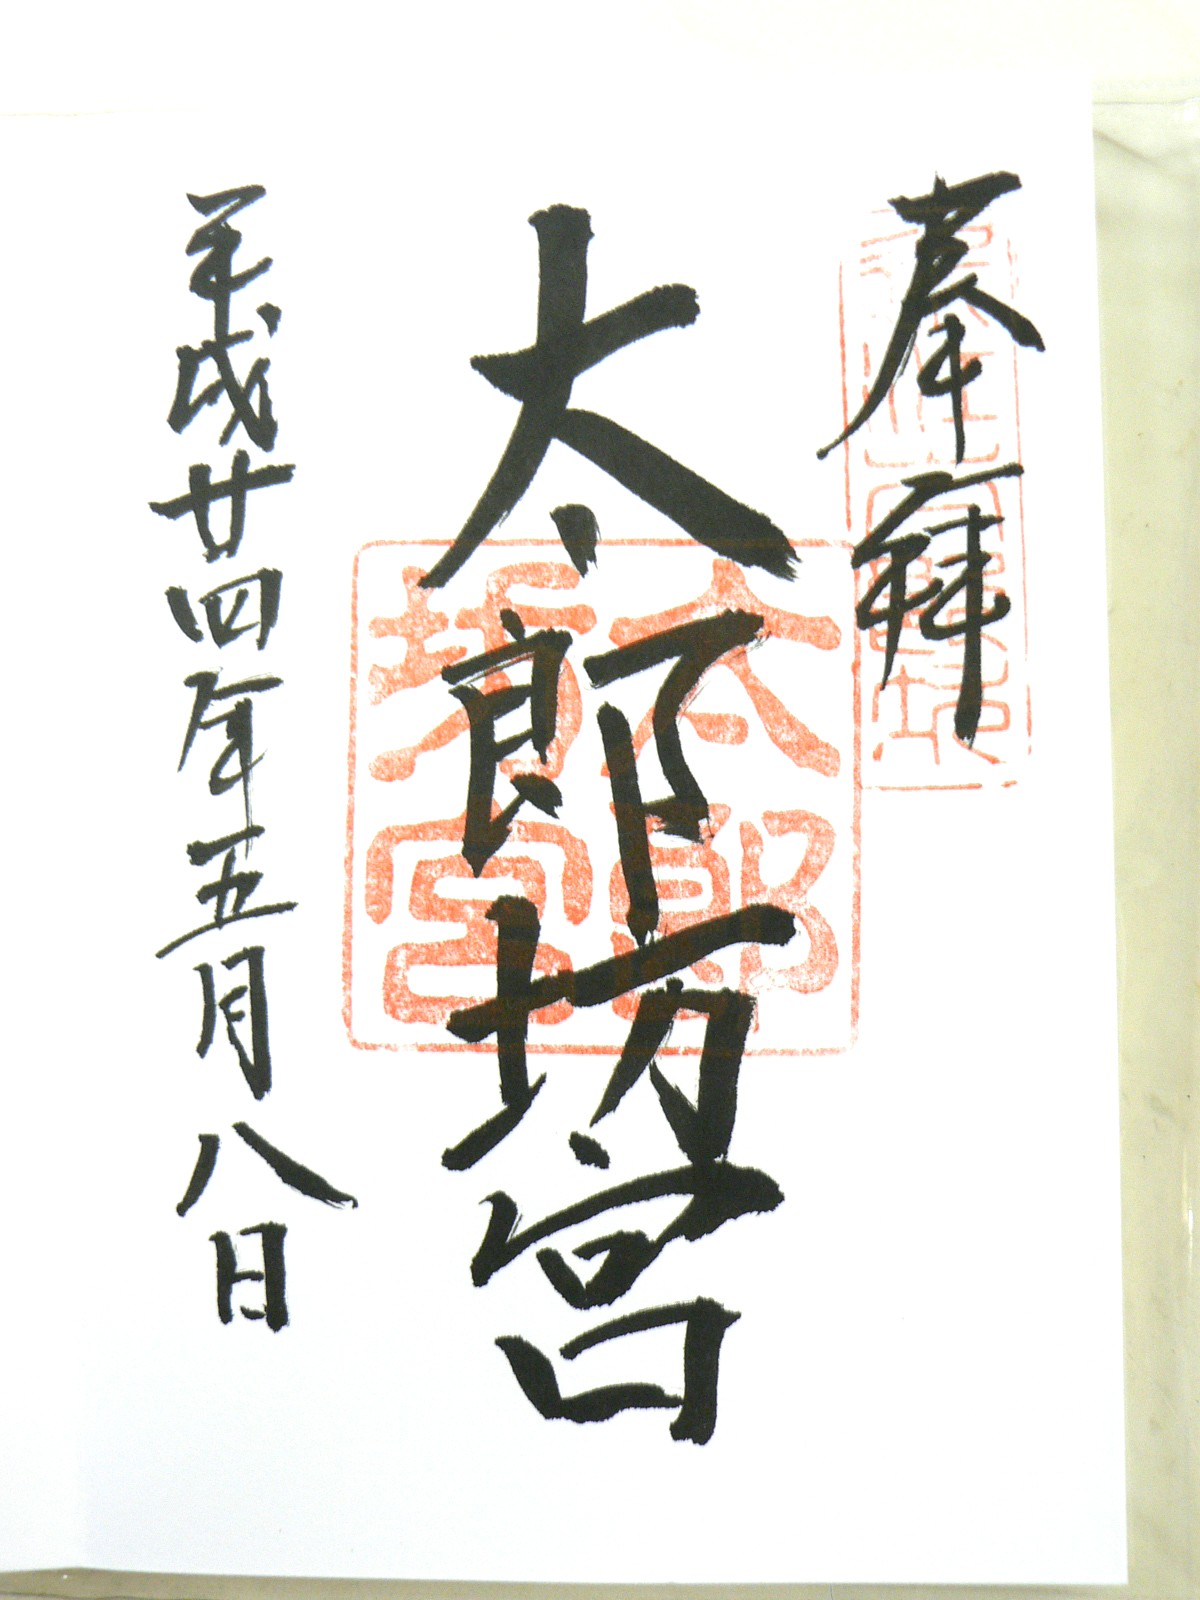 奉拝
太郎坊宮
太郎坊宮
平成廿四年五月八日